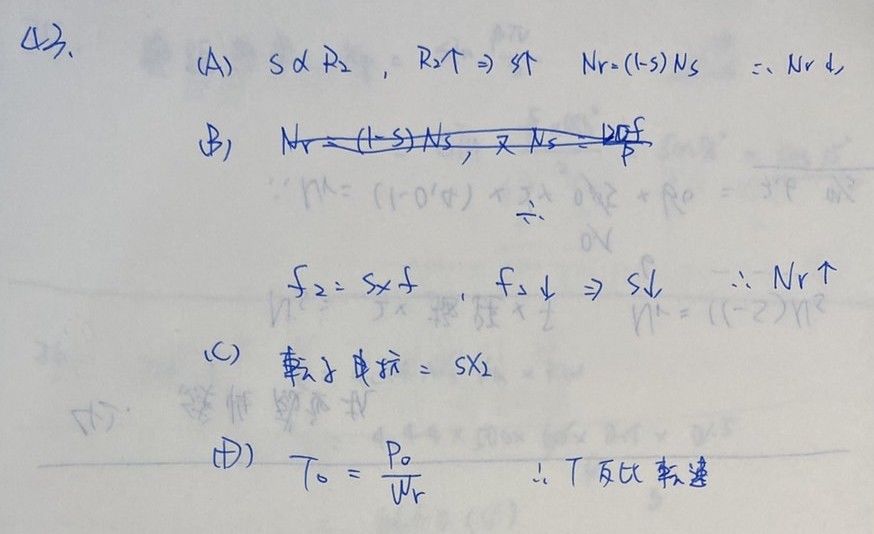 43.
(A) S∝R₂ , R₂↑ ⇒ S↑ Nr=(1-S)Ns ∴ Nr↓
(B) Nr=(1-S)Ns, 又 Ns=120f/P
f₂=S×f , f₂↓ ⇒ S↓ ∴ Nr↑
(C) 転子電抗 = SX₂
(D) T₀ = P₀/Wr ∴ T 反比 転速